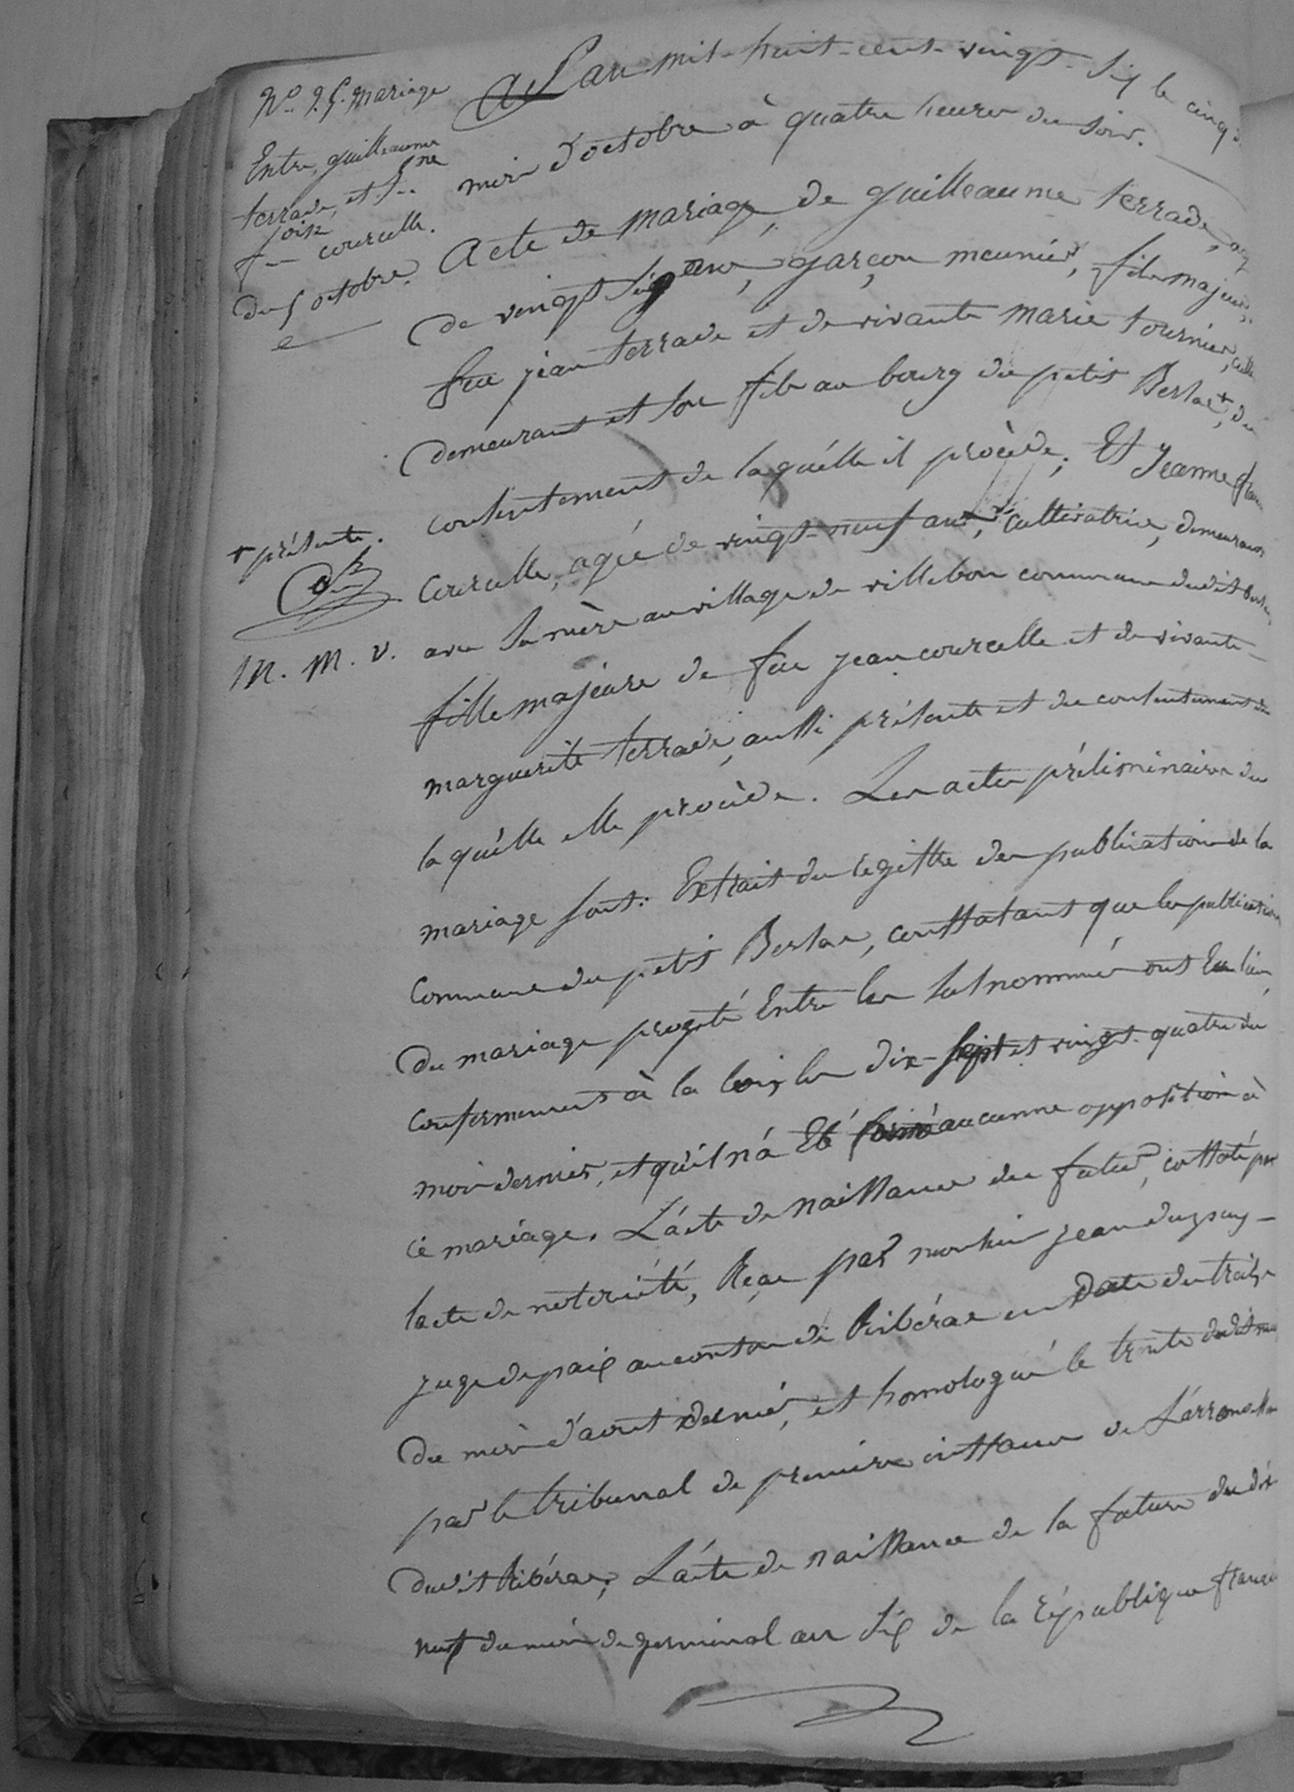 N.° 25. Mariage
Entre, guilleaume
terrade, et J.ne
f.oise courcelle.
du 5 octobre.
L'an mil-huit-cent-vingt-six le cinq
mois d'octobre à quatre heures du soir.
Acte de mariage, de guilleaume terrade, agé
de vingt six ans, garçon meunier, fils majeur,
feu jean terrade et de vivante marie tournier, celle
demeurant et son fils au bourg du petit Bersac+, du
consentement de laquélle il procède; Et Jeanne fran
+ présente.
Courcelle, agée de vingt-neuf ans, cultivatrice, demeurant
M. M. V.
avec sa mère au village de villebon commune dudit Bersac,
fille majeure de feu jean courcelle et de vivante
marguerite terrade, aussi présente et du consentement de
laquélle elle procède. Les actes préliminaires du
mariage sont: Extrait du registre des publications de la
commune du petit Bersac, constatant que les publications
du mariage progeté Entre les susnommés ont Eu lieu
conformement à la loix les dix-sept et vingt-quatre du
mois dernier, et qu'il n'á Eté formé aucunne opposition à
ce mariage. L'acte de naissance du futur, constaté par
lacte de notoriété, Reçu par monsieur jean dupuy
juge de paix au canton de Ribérac en date du treize
du mois d'aout dernier, et homologué le trente dudit mois
par le tribunal de première instance de L'arrondissem
dudit Ribérac; L'acte de naissance de la future du dix
neuf du mois de germinal an six de la République frança